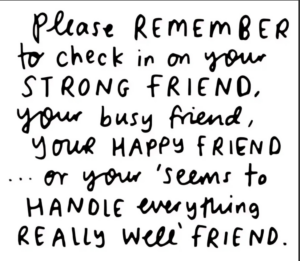 please REMEMBER
to check in on your
STRONG FRIEND,
your busy friend,
YOUR HAPPY FRIEND
... or your 'seems to
HANDLE everything
REALLY well' FRIEND.